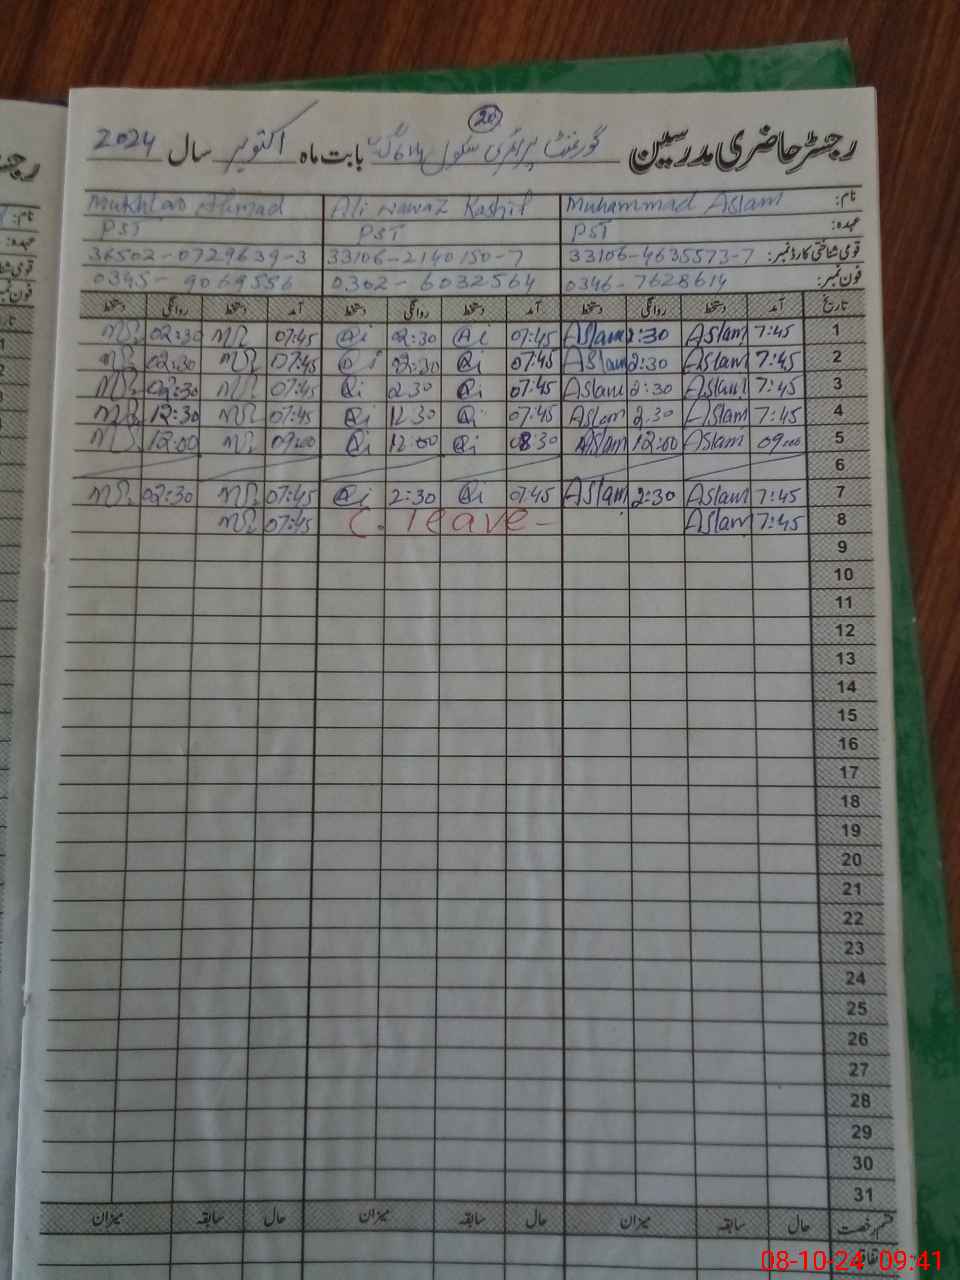 20
رجسٹر حاضری مدرسین گورنمنٹ پرائمری سکول بابت ماہ اکتوبر سال 2024
نام: Muhammad Aslam Ali Nawaz Kashif Mukhtar Ahmad
عہدہ: PST PST PST
قومی شناختی کارڈ نمبر: 33106-4635573-7 33106-2140150-7 36502-0729639-3
فون نمبر: 0346-7628614 0302-6032564 0345-9069556
تاریخ آمد دستخط روانگی دستخط آمد دستخط روانگی دستخط آمد دستخط روانگی دستخط
1 7:45 Aslam 2:30 Aslam 07:45 Ai 2:30 Ai 07:45 02:30
2 7:45 Aslam 2:30 Aslam 07:45 Qi 02:30 07:45 02:30
3 7:45 Aslam 2:30 Aslam 07:45 Qi 2:30 Qi 07:45 02:30
4 7:45 Aslam 2:30 Aslam 07:45 Qi 12:30 Qi 07:45 12:30
5 09:00 Aslam 12:00 Aslam 08:30 Qi 12:00 Qi 09:00 12:00
6
7 7:45 Aslam 2:30 Aslam 07:45 Qi 2:30 Qi 07:45 02:30
8 7:45 Aslam C. leave 07:45
9
10
11
12
13
14
15
16
17
18
19
20
21
22
23
24
25
26
27
28
29
30
31
قسم رخصت حال سابقہ میزان حال سابقہ میزان حال سابقہ میزان
08-10-24 09:41